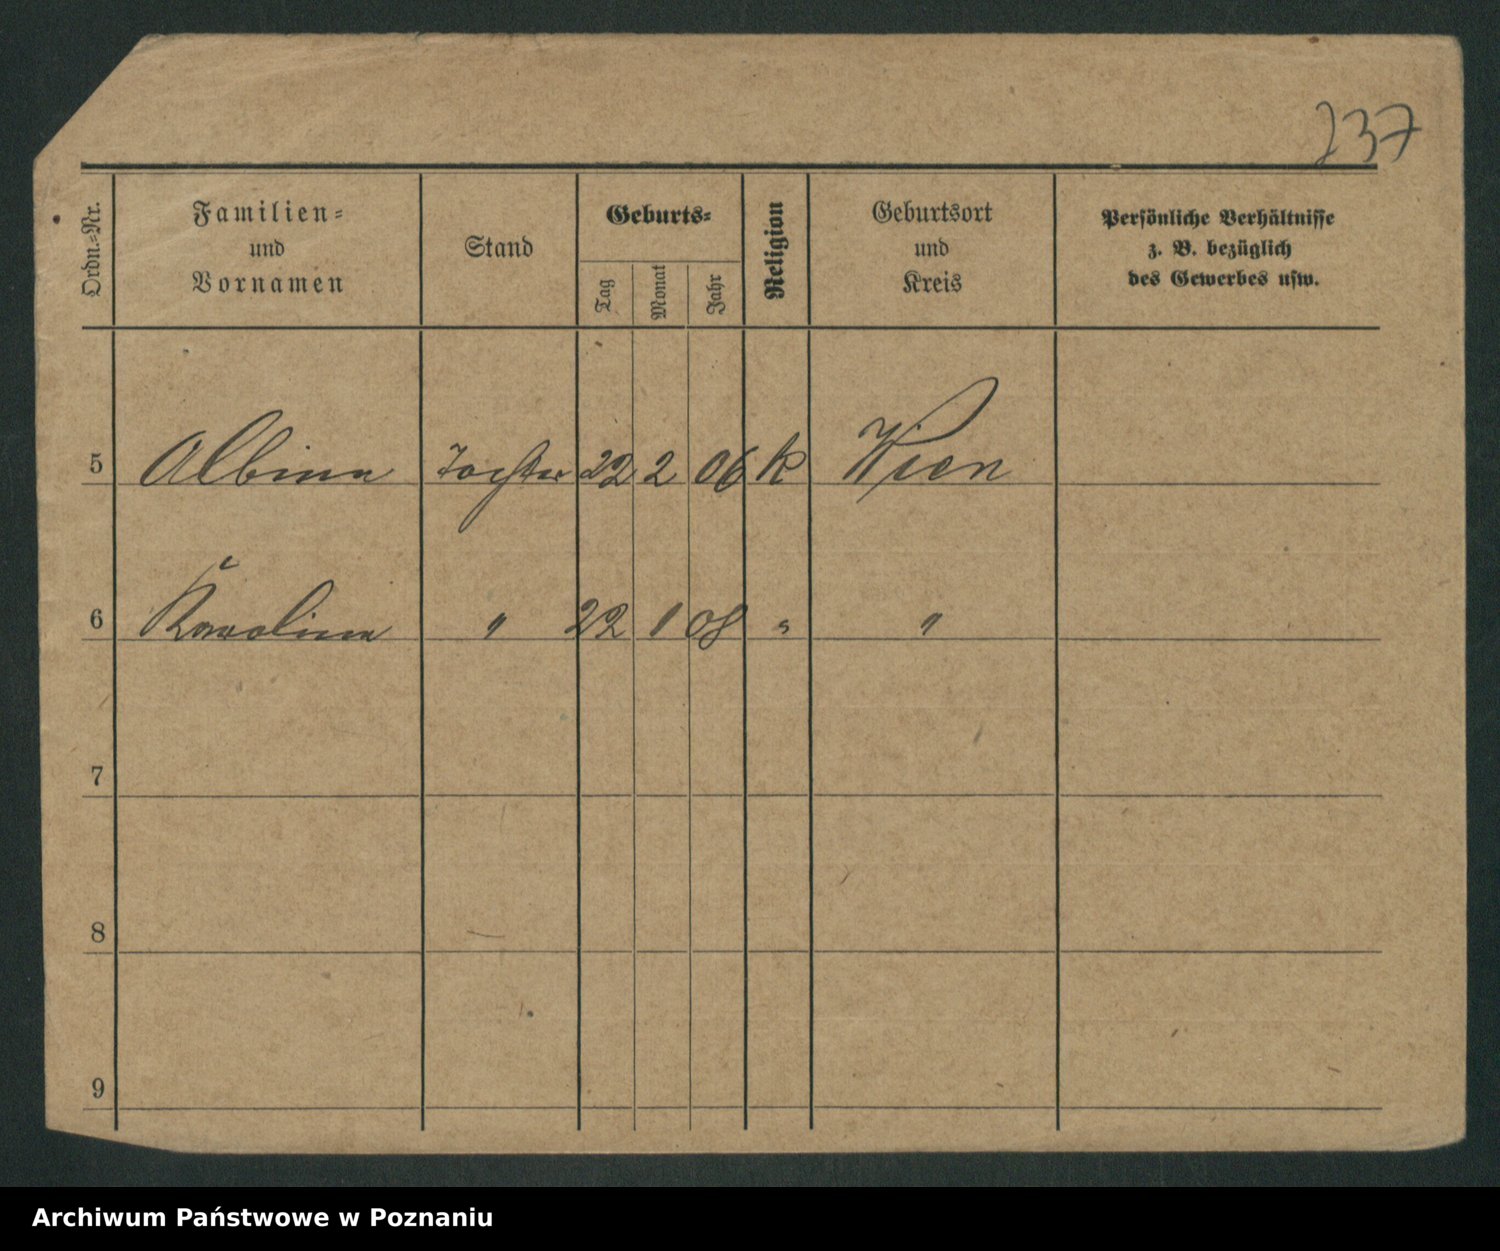 237
Ordn.-Nr.
Familien-
und
Vornamen
Stand
Geburts-
Tag
Monat
Jahr
Religion
Geburtsort
und
Kreis
Persönliche Verhältnisse
z. B. bezüglich
des Gewerbes usw.
5 Albina Tochter 22 2 06 k Wien
6 Karolina " 22 1 08 " "
7
8
9
Archiwum Państwowe w Poznaniu